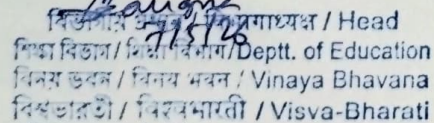 বিভাগীয় প্রধান / विभागाध्यक्ष / Head
শিক্ষা বিভাগ / शिक्षा विभाग/Deptt. of Education
বিনয় ভবন / विनय भवन / Vinaya Bhavana
বিশ্বভারতী / विश्वभारती / Visva-Bharati